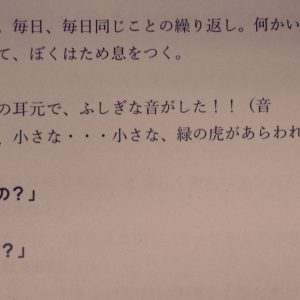 。毎日、毎日同じことの繰り返し。何かい
て、ぼくはため息をつく。
の耳元で、ふしぎな音がした！！（音
、小さな・・・小さな、緑の虎があらわれ
の？」
？」